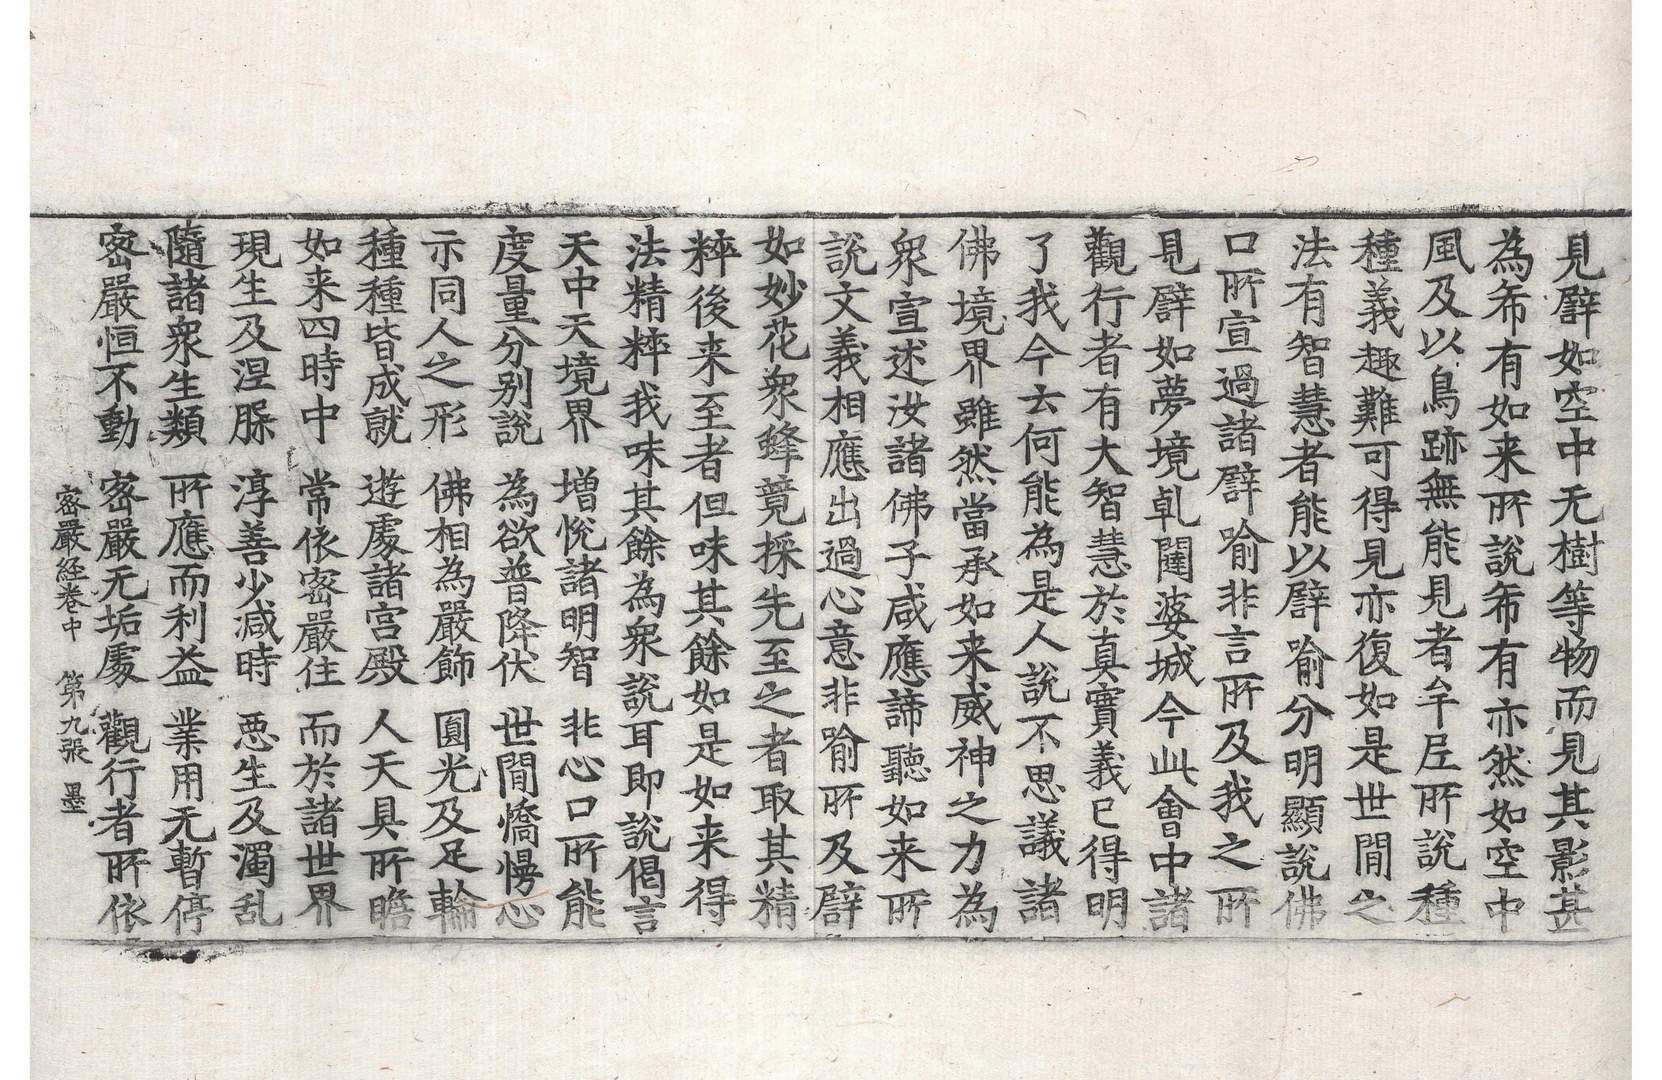 見譬如空中无樹等物而見其影甚
為希有如来所說希有亦然如空中
風及以鳥跡無能見者牟尼所說種
種義趣難可得見亦復如是世間之
法有智慧者能以譬喻分明顯說佛
口所宣過諸譬喻非言所及我之所
見譬如夢境乹闥婆城今此會中諸
觀行者有大智慧於真實義已得明
了我今云何能為是人說不思議諸
佛境界雖然當承如来威神之力為
衆宣述汝諸佛子咸應諦聽如来所
說文義相應出過心意非喻所及譬
如妙花衆蜂競採先至之者取其精
粹後来至者但味其餘如是如来得
法精粹我味其餘為衆說耳即說偈言
天中天境界 增悅諸明智 非心口所能
度量分别說 為欲普降伏 世間憍慢心
示同人之形 佛相為嚴飾 圓光及足輪
種種皆成就 遊處諸宮殿 人天具所瞻
如来四時中 常依密嚴住 而於諸世界
現生及涅槃 淳善少減時 惡生及濁乱
隨諸衆生類 所應而利益 業用无暫停
密嚴恒不動 密嚴无垢處 觀行者所依
密嚴経卷中 第九張 墨